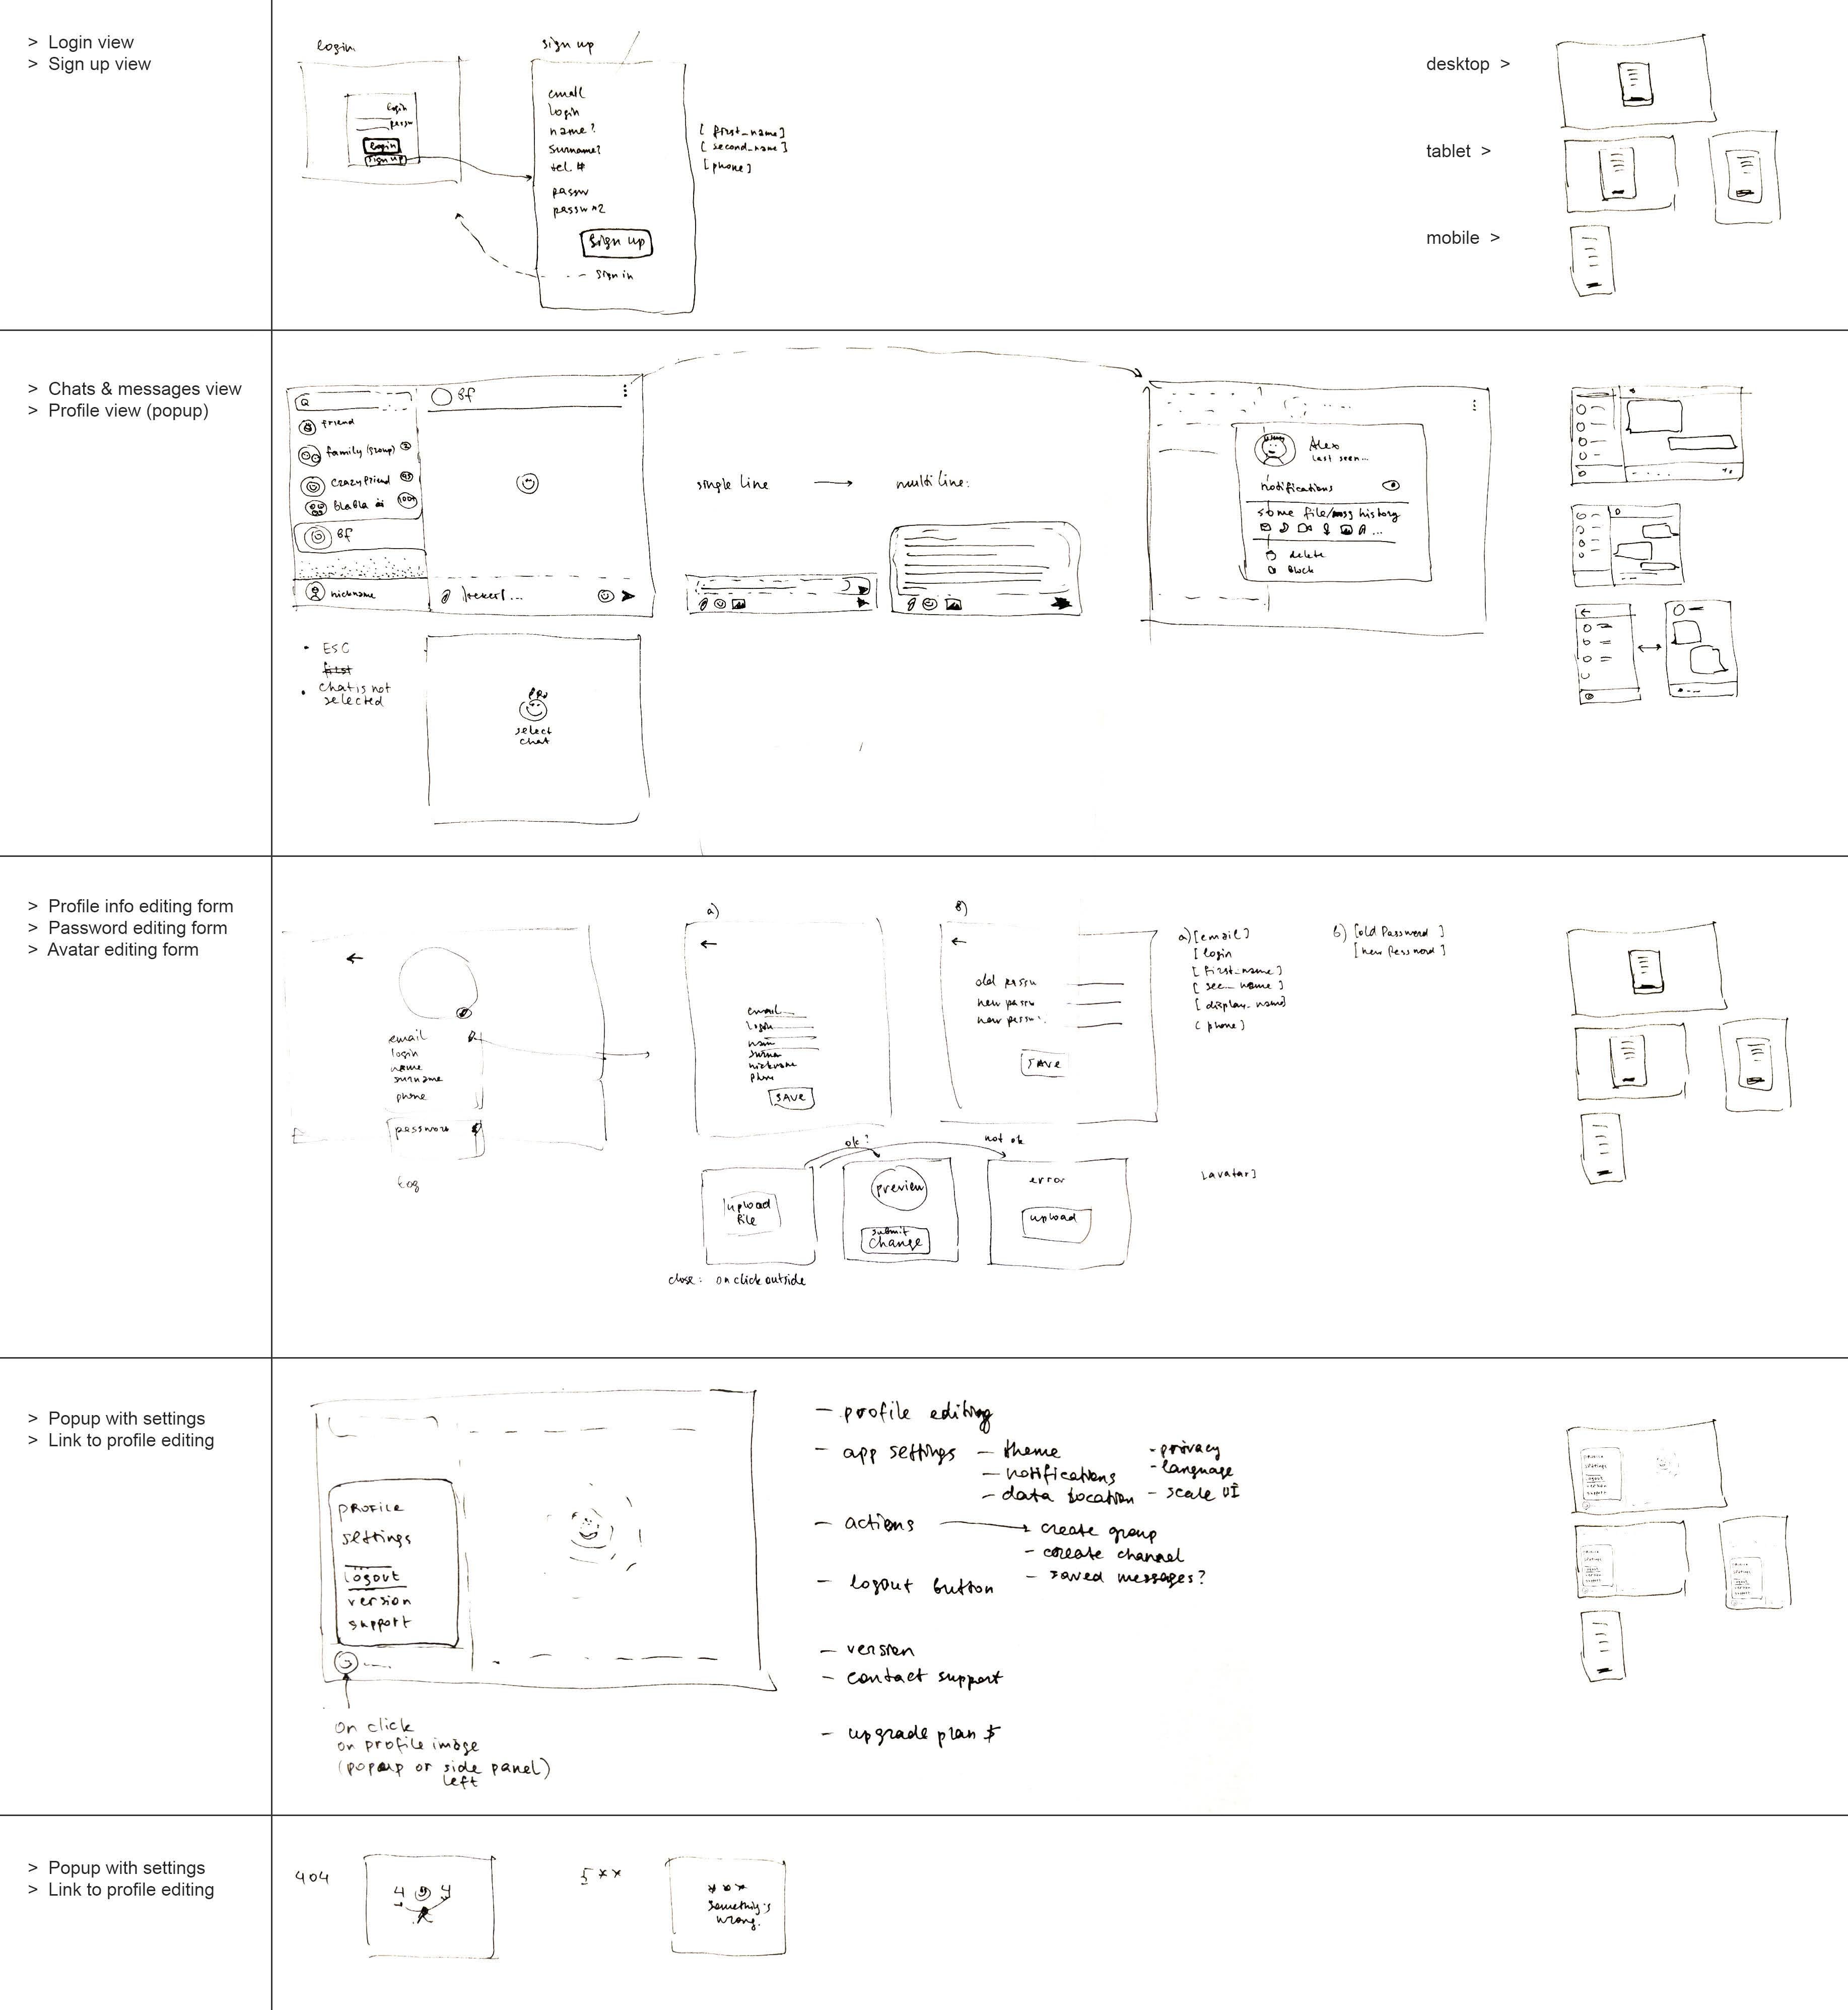 > Login view
> Sign up view
login
login
passw
login
sign up
sign up
email
login
name?
surname?
tel. #
passw
passw #2
sign up
sign in
[ first_name ]
[ second_name ]
[ phone ]
desktop >
tablet >
mobile >
> Chats & messages view
> Profile view (popup)
friend
family (group)
crazy friend
blabla
100+
Bf
nickname
Bf
• ESC
• chat is not
selected
select
chat
single line
multiline:
Alex
last seen...
notifications
some file/msg history
delete
block
> Profile info editing form
> Password editing form
> Avatar editing form
email
login
name
surname
phone
password
a)
email
login
name
surname
nickname
phone
SAVE
old passw
new passw
new passw
SAVE
a) [email]
[ login
[ first_name ]
[ sec_name ]
[ display_name]
[ phone ]
[old Password ]
[new Password ]
upload
file
close: on click outside
ok?
preview
submit
change
not ok
error
upload
[avatar]
> Popup with settings
> Link to profile editing
PROFILE
settings
logout
version
support
on click
on profile image
(popup or side panel)
left
- profile editing
- app settings - theme - privacy
- notifications - language
- data location - scale UI
- actions create group
- create channel
- logout button - saved messages?
- version
- contact support
- upgrade plan $
> Popup with settings
> Link to profile editing
404
4 4
5**
***
something's
wrong.